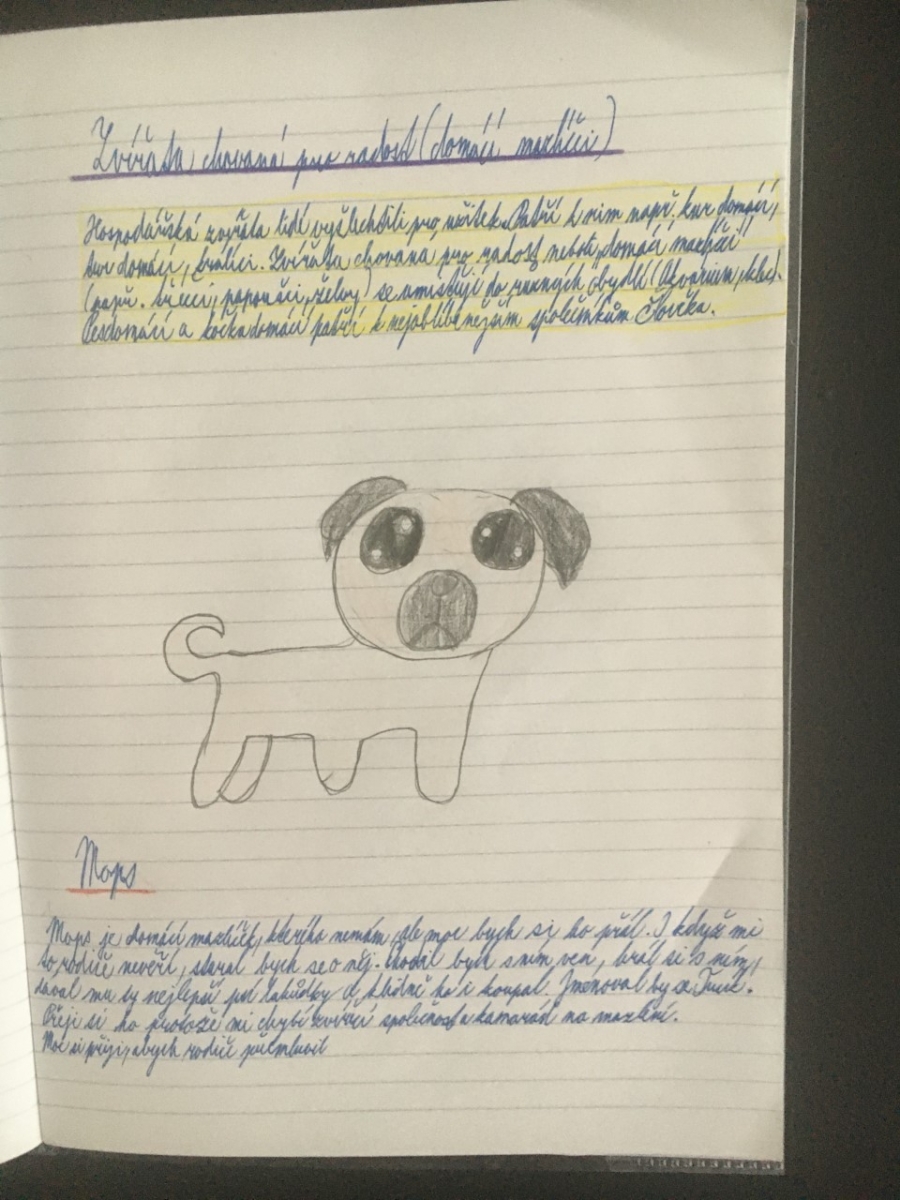 Zvířata chovaná pro radost (domácí mazlíčci)
Hospodářská zvířata lidé vyšlechtili pro užitek. Patří k nim např. kur domácí,
tur domácí, králíci. Zvířata chovaná pro radost neboli „domácí mazlíčci"
(např. křečci, papoušci, želvy) se umisťují do různých obydlí (Akvárium, klec).
Pes domácí a kočka domácí patří k nejoblíbenějším společníkům Člověka.
Mops
Mops je domácí mazlíček, kterého nemám, ale moc bych si ho přál. I když mi
to rodiče nevěří, staral bych se o něj. Chodil bych s ním ven, hrál si s ním,
dával mu ty nejlepší psí lahůdky a klidně ho i koupal. Jmenoval by se
Přeji si ho protože mi chybí zvířecí společnost a kamarád na mazlení.
Moc si přeji, abych rodiče přemluvil